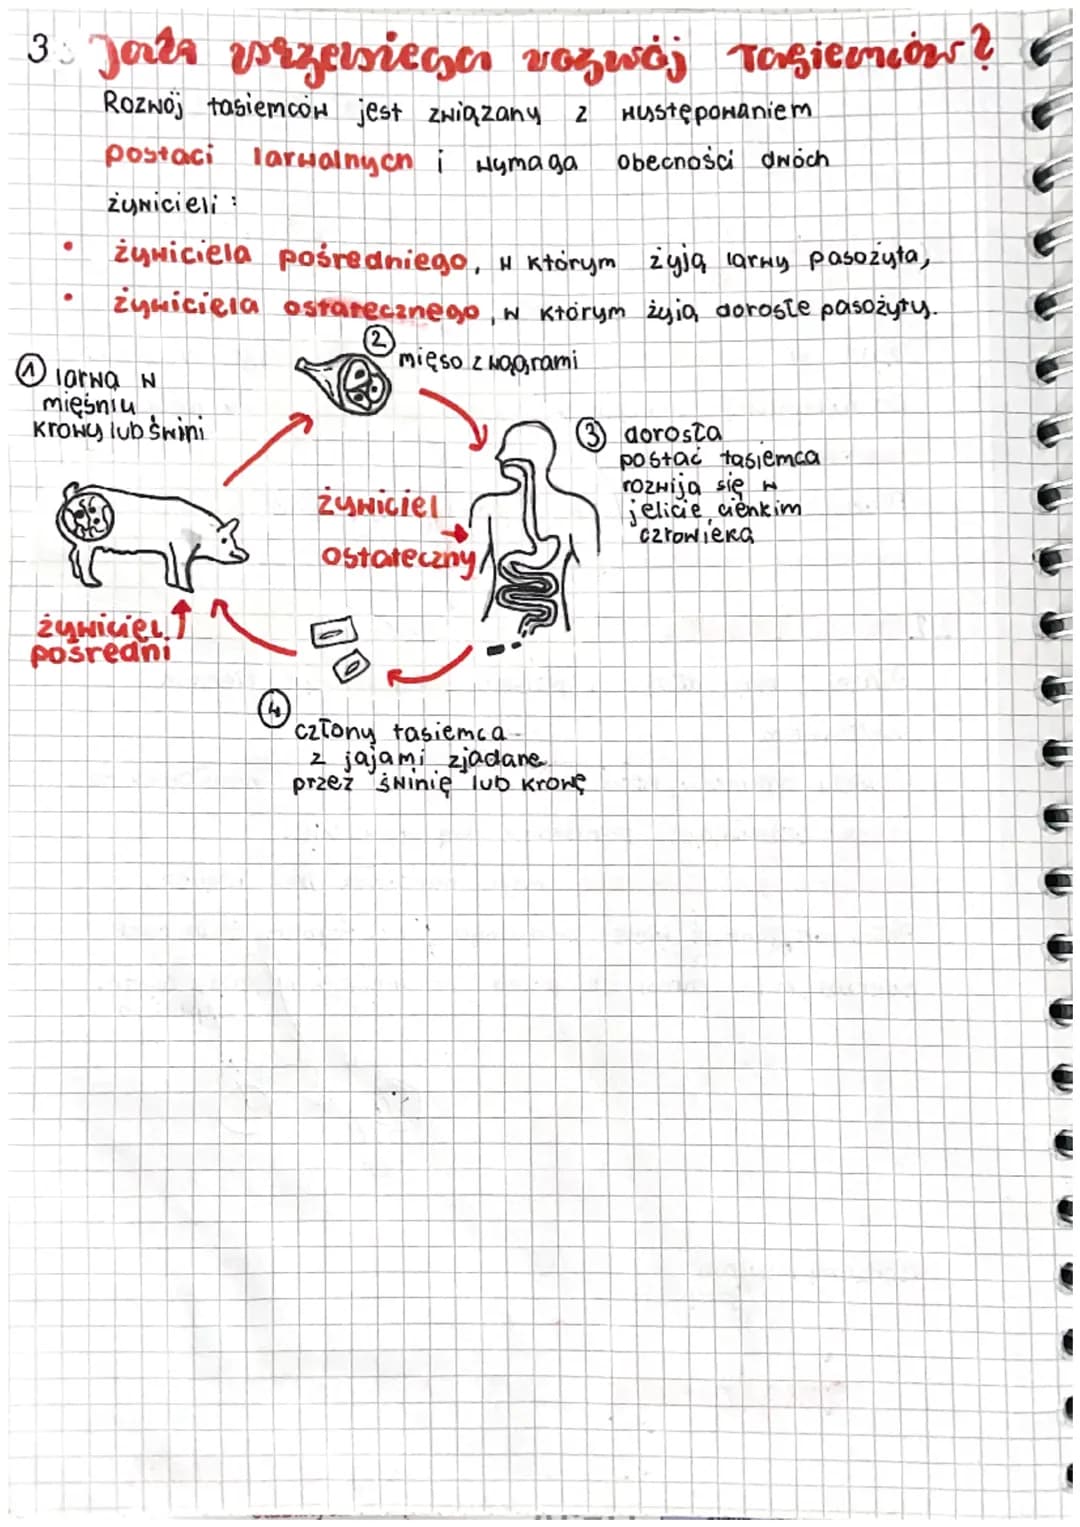 3. Jak przebiega rozwój tasiemców?
Rozwój tasiemców jest związany z występowaniem
postaci larwalnych i wymaga obecności dwóch
żywicieli:
• żywiciela pośredniego, w którym żyją larwy pasożyta,
• żywiciela ostatecznego, w którym żyją dorosłe pasożyty.
1 larwa w
mięśniu
krowy lub świni
2 mięso z wągrami
3 dorosła
postać tasiemca
rozwija się w
jelicie cienkim
człowieka
żywiciel
ostateczny
żywiciel
pośredni
4
człony tasiemca
z jajami zjadane
przez świnię lub krowę